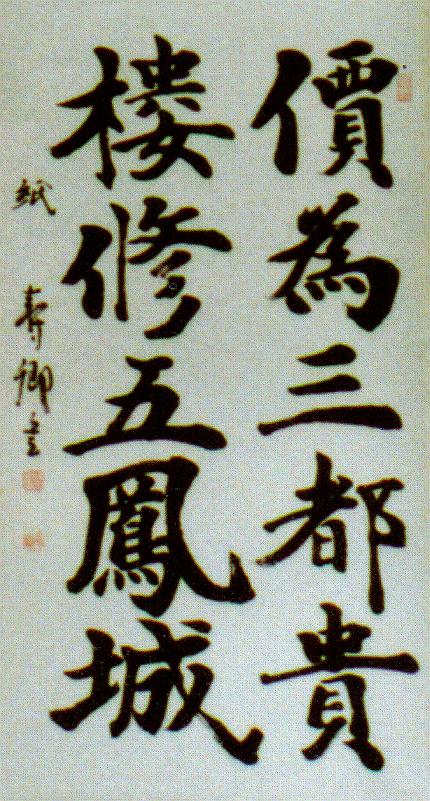 價為三都貴
樓修五鳳城
紙
壽卿書